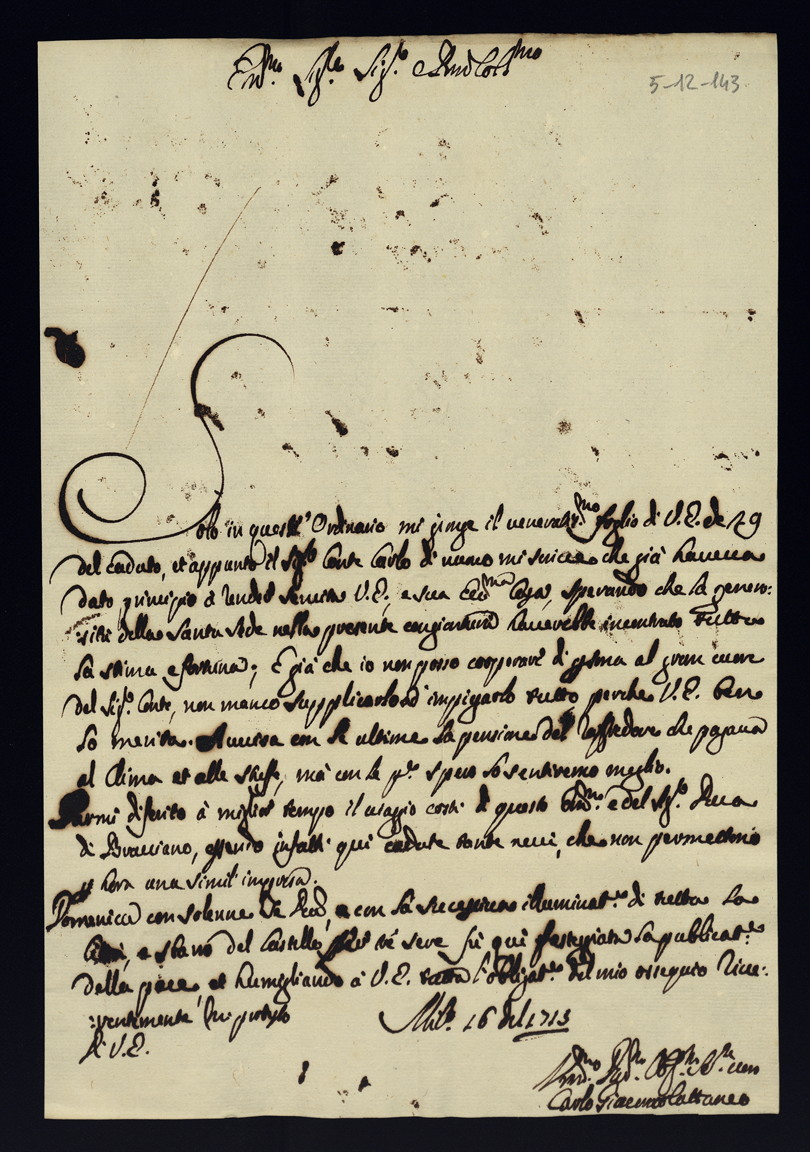 Em.mo Sig.re Sig.r e Pron Col.mo
5-12-143
Solo in quest' Ordinario mi giunge il veneratis.mo foglio di V.E. de 29
del caduto, et appunto il Sig.r Conte Carlo di nuovo mi scrive che già haveva
dato principio à render servita V.E., e sua Ecc.ma Casa, sperando che la genero:
sità della Santa Sede nella presente congiuntura haverebbe incontrato tutta
la stima e fortuna; E già che io non posso di al gran cuore
del Sig.r Conte, non manco supplicarlo ad impiegarlo tutto perche V.E. ben
lo merita. Avvisa con le ultime la pensione del Raffredore che pagava
al Clima et alle stuffe, mà con le p.e spero lo sentiremo meglio.
Parmi diferito à miglior tempo il viaggio costì di questo e del Sig.r Duca
di Bracciano, essendo infatti quì cadute tante nevi, che non permettono
p hora una simil impresa.
Domenica con solenne Te Deum, e con la successiva illuminat.ne di tutta la
Città, e sbarò del Castello per trè sere fù quì festeggiata la publicat.ne
della pace, et humigliando à V.E. tutta l'obligat.ne del mio ossequio rive:
:rentemente mi protesto
Di V.E.
Mil.o 16 del 1713
Hum.mo Dev.mo Obl.mo Ser.re vero
Carlo Giacomo Cattaneo